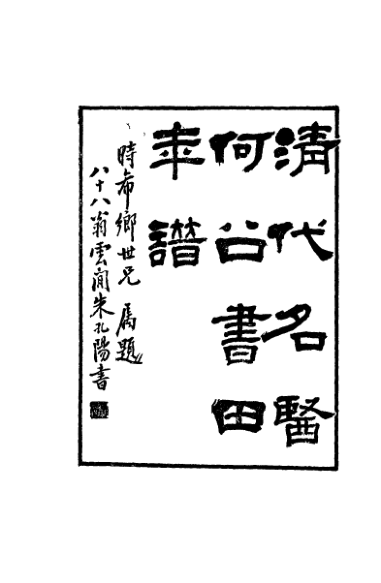 清代名醫
何公書田
年譜
時希鄉世兄 屬題
八十八翁雲間朱孔陽書